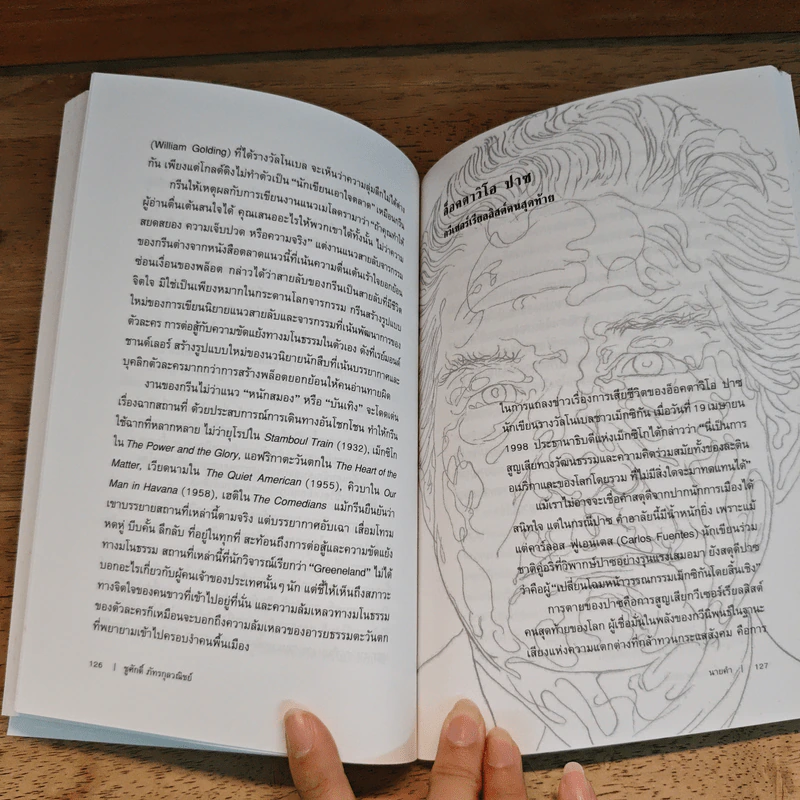 (William Golding) ที่ได้รางวัลโนเบล จะเห็นว่าความลุ่มลึกไม่ได้ต่าง
กัน เพียงแต่โกลด์ดิงไม่ทำตัวเป็น “นักเขียนเอาใจตลาด” เหมือนกรีน
กรีนให้เหตุผลกับการเขียนงานแนวเมโลดรามาว่า “ถ้าคุณทำให้
ผู้อ่านตื่นเต้นสนใจได้ คุณเสนออะไรให้พวกเขาได้ทั้งนั้น ไม่ว่าความ
สยดสยอง ความเจ็บปวด หรือความจริง” แต่งานแนวสายลับจารกรรม
ของกรีนต่างจากหนังสือตลาดแนวนี้ที่เน้นความตื่นเต้นเร้าใจยอกย้อน
ซ่อนเงื่อนของพล็อต กล่าวได้ว่าสายลับของกรีนเป็นสายลับที่มีชีวิต
จิตใจ มิใช่เป็นเพียงหมากในกระดานโลกจารกรรม กรีนสร้างรูปแบบ
ใหม่ของการเขียนนิยายแนวสายลับและจารกรรมที่เน้นพัฒนาการของ
ตัวละคร การต่อสู้กับความขัดแย้งทางมโนธรรมในตัวเอง ดังที่เรย์มอนด์
ชานด์เลอร์ สร้างรูปแบบใหม่ของนวนิยายนักสืบที่เน้นบรรยากาศและ
บุคลิกตัวละครมากกว่าการสร้างพล็อตยอกย้อนให้คนอ่านทายผิด
งานของกรีนไม่ว่าแนว “หนักสมอง” หรือ “บันเทิง” จะโดดเด่น
เรื่องฉากสถานที่ ด้วยประสบการณ์การเดินทางอันโชกโชน ทำให้กรีน
ใช้ฉากที่หลากหลาย ไม่ว่ายุโรปใน Stamboul Train (1932), เม็กซิโก
ใน The Power and the Glory, แอฟริกาตะวันตกใน The Heart of the
Matter, เวียดนามใน The Quiet American (1955), คิวบาใน Our
Man in Havana (1958), เฮติใน The Comedians แม้กรีนยืนยันว่า
เขาบรรยายสถานที่เหล่านี้ตามจริง แต่บรรยากาศอับเฉา เสื่อมโทรม
หดหู่ บีบคั้น ลึกลับ ที่อยู่ในทุกที่ สะท้อนถึงการต่อสู้และความขัดแย้ง
ทางมโนธรรม สถานที่เหล่านี้ที่นักวิจารณ์เรียกว่า “Greeneland” ไม่ได้
บอกอะไรเกี่ยวกับผู้คนเจ้าของประเทศนั้นๆ นัก แต่ชี้ให้เห็นถึงสภาวะ
ทางจิตใจของคนขาวที่เข้าไปอยู่ที่นั่น และความล้มเหลวทางมโนธรรม
ของตัวละครก็เหมือนจะบอกถึงความล้มเหลวของอารยธรรมตะวันตก
ที่พยายามเข้าไปครอบงำคนพื้นเมือง
126 | ชูศักดิ์ ภัทรกุลวณิชย์
อ็อคตาวิโอ ปาซ
กวีเซอร์เรียลลิสต์คนสุดท้าย
ในการแถลงข่าวเรื่องการเสียชีวิตของอ็อคตาวิโอ ปาซ
นักเขียนรางวัลโนเบลชาวเม็กซิกัน เมื่อวันที่ 19 เมษายน
1998 ประธานาธิบดีแห่งเม็กซิโกได้กล่าวว่า “นี่เป็นการ
สูญเสียทางวัฒนธรรมและความคิดร่วมสมัยทั้งของละติน
อเมริกาและของโลกโดยรวม ที่ไม่มีสิ่งใดจะมาทดแทนได้”
แม้เราไม่อาจจะเชื่อคำสดุดีจากปากนักการเมืองได้
สนิทใจ แต่ในกรณีปาซ คำอาลัยนี้มีน้ำหนักยิ่ง เพราะแม้
แต่คาร์ลอส ฟูเอนเตส (Carlos Fuentes) นักเขียนร่วม
ชาติคู่อริที่วิพากษ์ปาซอย่างรุนแรงเสมอมา ยังสดุดีปาซ
ว่าคือผู้ “เปลี่ยนโฉมหน้าวรรณกรรมเม็กซิกันโดยสิ้นเชิง”
การตายของปาซคือการสูญเสียกวีเซอร์เรียลลิสต์
คนสุดท้ายของโลก ผู้เชื่อมั่นในพลังของกวีนิพนธ์ในฐานะ
เสียงแห่งความแตกต่างที่กล้าทวนกระแสสังคม คือการ
นายคำ | 127